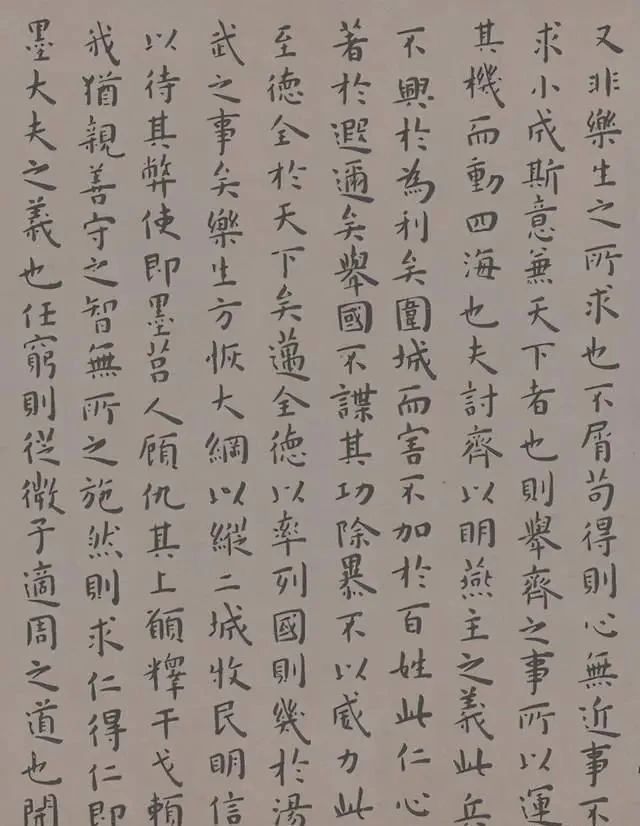 又非樂生之所求也不屑苟得則心無近事不
求小成斯意兼天下者也則舉齊之事所以運
其機而動四海也夫討齊以明燕主之義此兵
不興於為利矣圍城而害不加於百姓此仁心
著於遐邇矣舉國不謀其功除暴不以威力此
至德全於天下矣邁全德以率列國則幾於湯
武之事矣樂生方恢大綱以縱二城收民明信
以待其弊使即墨莒人顧仇其上願釋干戈賴
我猶親善守之智無所之施然則求仁得仁即
墨大夫之義也任窮則從微子適周之道也開